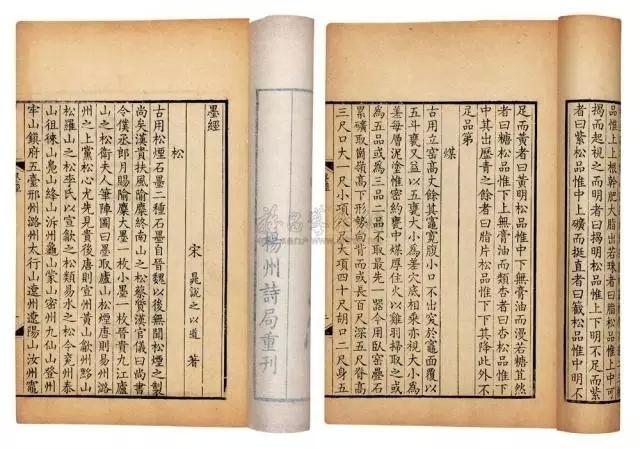 墨經
宋 晁說之以道 著
松
古用松煙石墨二種石墨自晉魏以後無聞松煙之製
尚矣漢貴扶風隃麋終南山之松蔡質漢官儀曰尚書
令僕丞郎月賜隃麋大墨一枚小墨一枚晉貴九江廬
山之松衛夫人筆陣圖曰墨取廬山松煙唐則易州潞
州之上黨松心尤先見貴後唐則宣州黃山歙州黟山
松羅山之松李氏以宣歙之松類易水之松今兗州泰
山徂徠山鳧山嶧山沂州龜山蒙山密州九仙山登州
牢山鎮府五臺邢州潞州太行山遼州遼陽山汝州竈
揚州詩局重刊
品惟上上根幹肥大脂出若珠者曰脂松品惟上中可
揭而起視之而明者曰揭明松品惟上下明不足而紫
者曰紫松品惟中上礦而挺直者曰籤松品惟中明不
足而黃者曰黃明松品惟中下無膏油而漫若糖苴然
者曰糖松品惟下上無膏油而類杏者曰杏松品惟下
中其出瀝青之餘者曰脂片松品惟下下其降此外不
足品第
煤
古用立窯高丈餘其竈寬腹小口不出突於竈面覆以
五斗甕又益以五甕大小爲差穴底相乘亦視大小爲
差每層泥塗惟密約甕中煤厚住火以雞羽掃取之或
爲五品或爲二品二品不取最先一器今用臥窯疊石
累礦取岡嶺高下形勢向背而或長百尺深五尺脊高
三尺口大一尺小項八尺大項四十尺胡口二尺身五